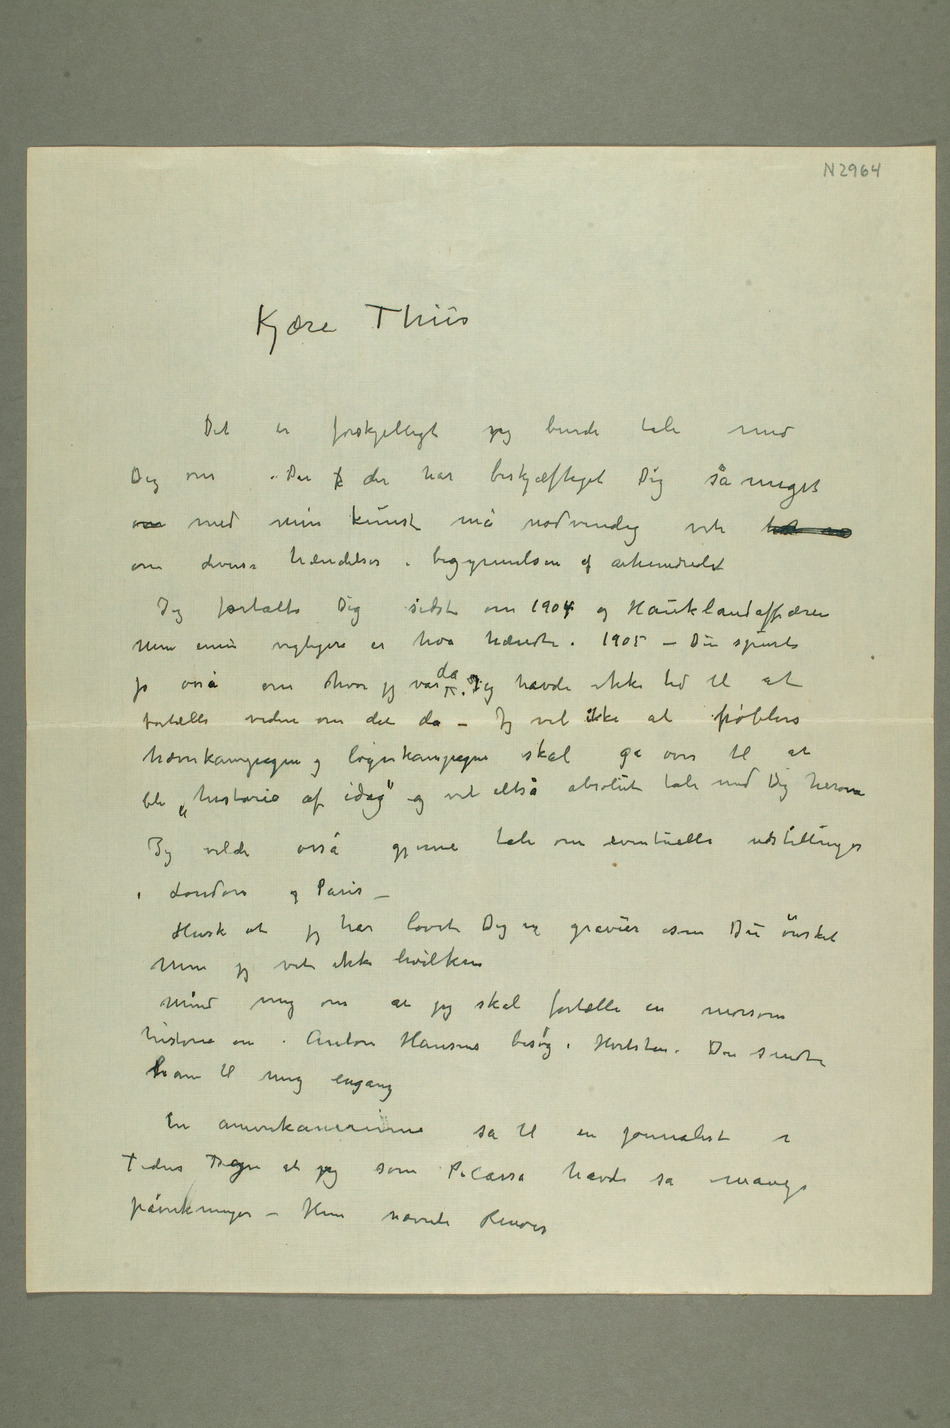 N 2964
Kjære Thiis
Det er forskjelligt jeg burde tale med
Dig om . Du der har beskjæftiget Dig så meget
om med min kunst må nødvendig vite
om diverse hændelser i begyndelsen af århundredet
Jeg fortalte Dig sidst om 1904 og Hauklandaffæren
men ennu vigtigere er hva hændte i 1905 – Du spurte
jo osså om hvor jeg var da. Jeg havde ikke tid til at
fortælle videre om det da – Jeg vil ikke at pøblens
hævnkampagne og løgnkampagne skal gå over til at
bli „historie af idag" og vil altså absolut tale med Dig herom
Jeg vilde osså gjerne tale om eventuelle udstillinger
i London og Paris –
Husk at jeg har lovet Dig en gravür som Du ønsket
men jeg vet ikke hvilken
Mind mig om at jeg skal fortælle en morsom
historie om Anton Hansens besøg i Hvitsten. Du sendte
ham til mig engang
En amerikanerinne sa til en journalist i
Tidens Tegn at jeg som Picasso havde så mange
påvirkninger – Hun nævnte Renoir